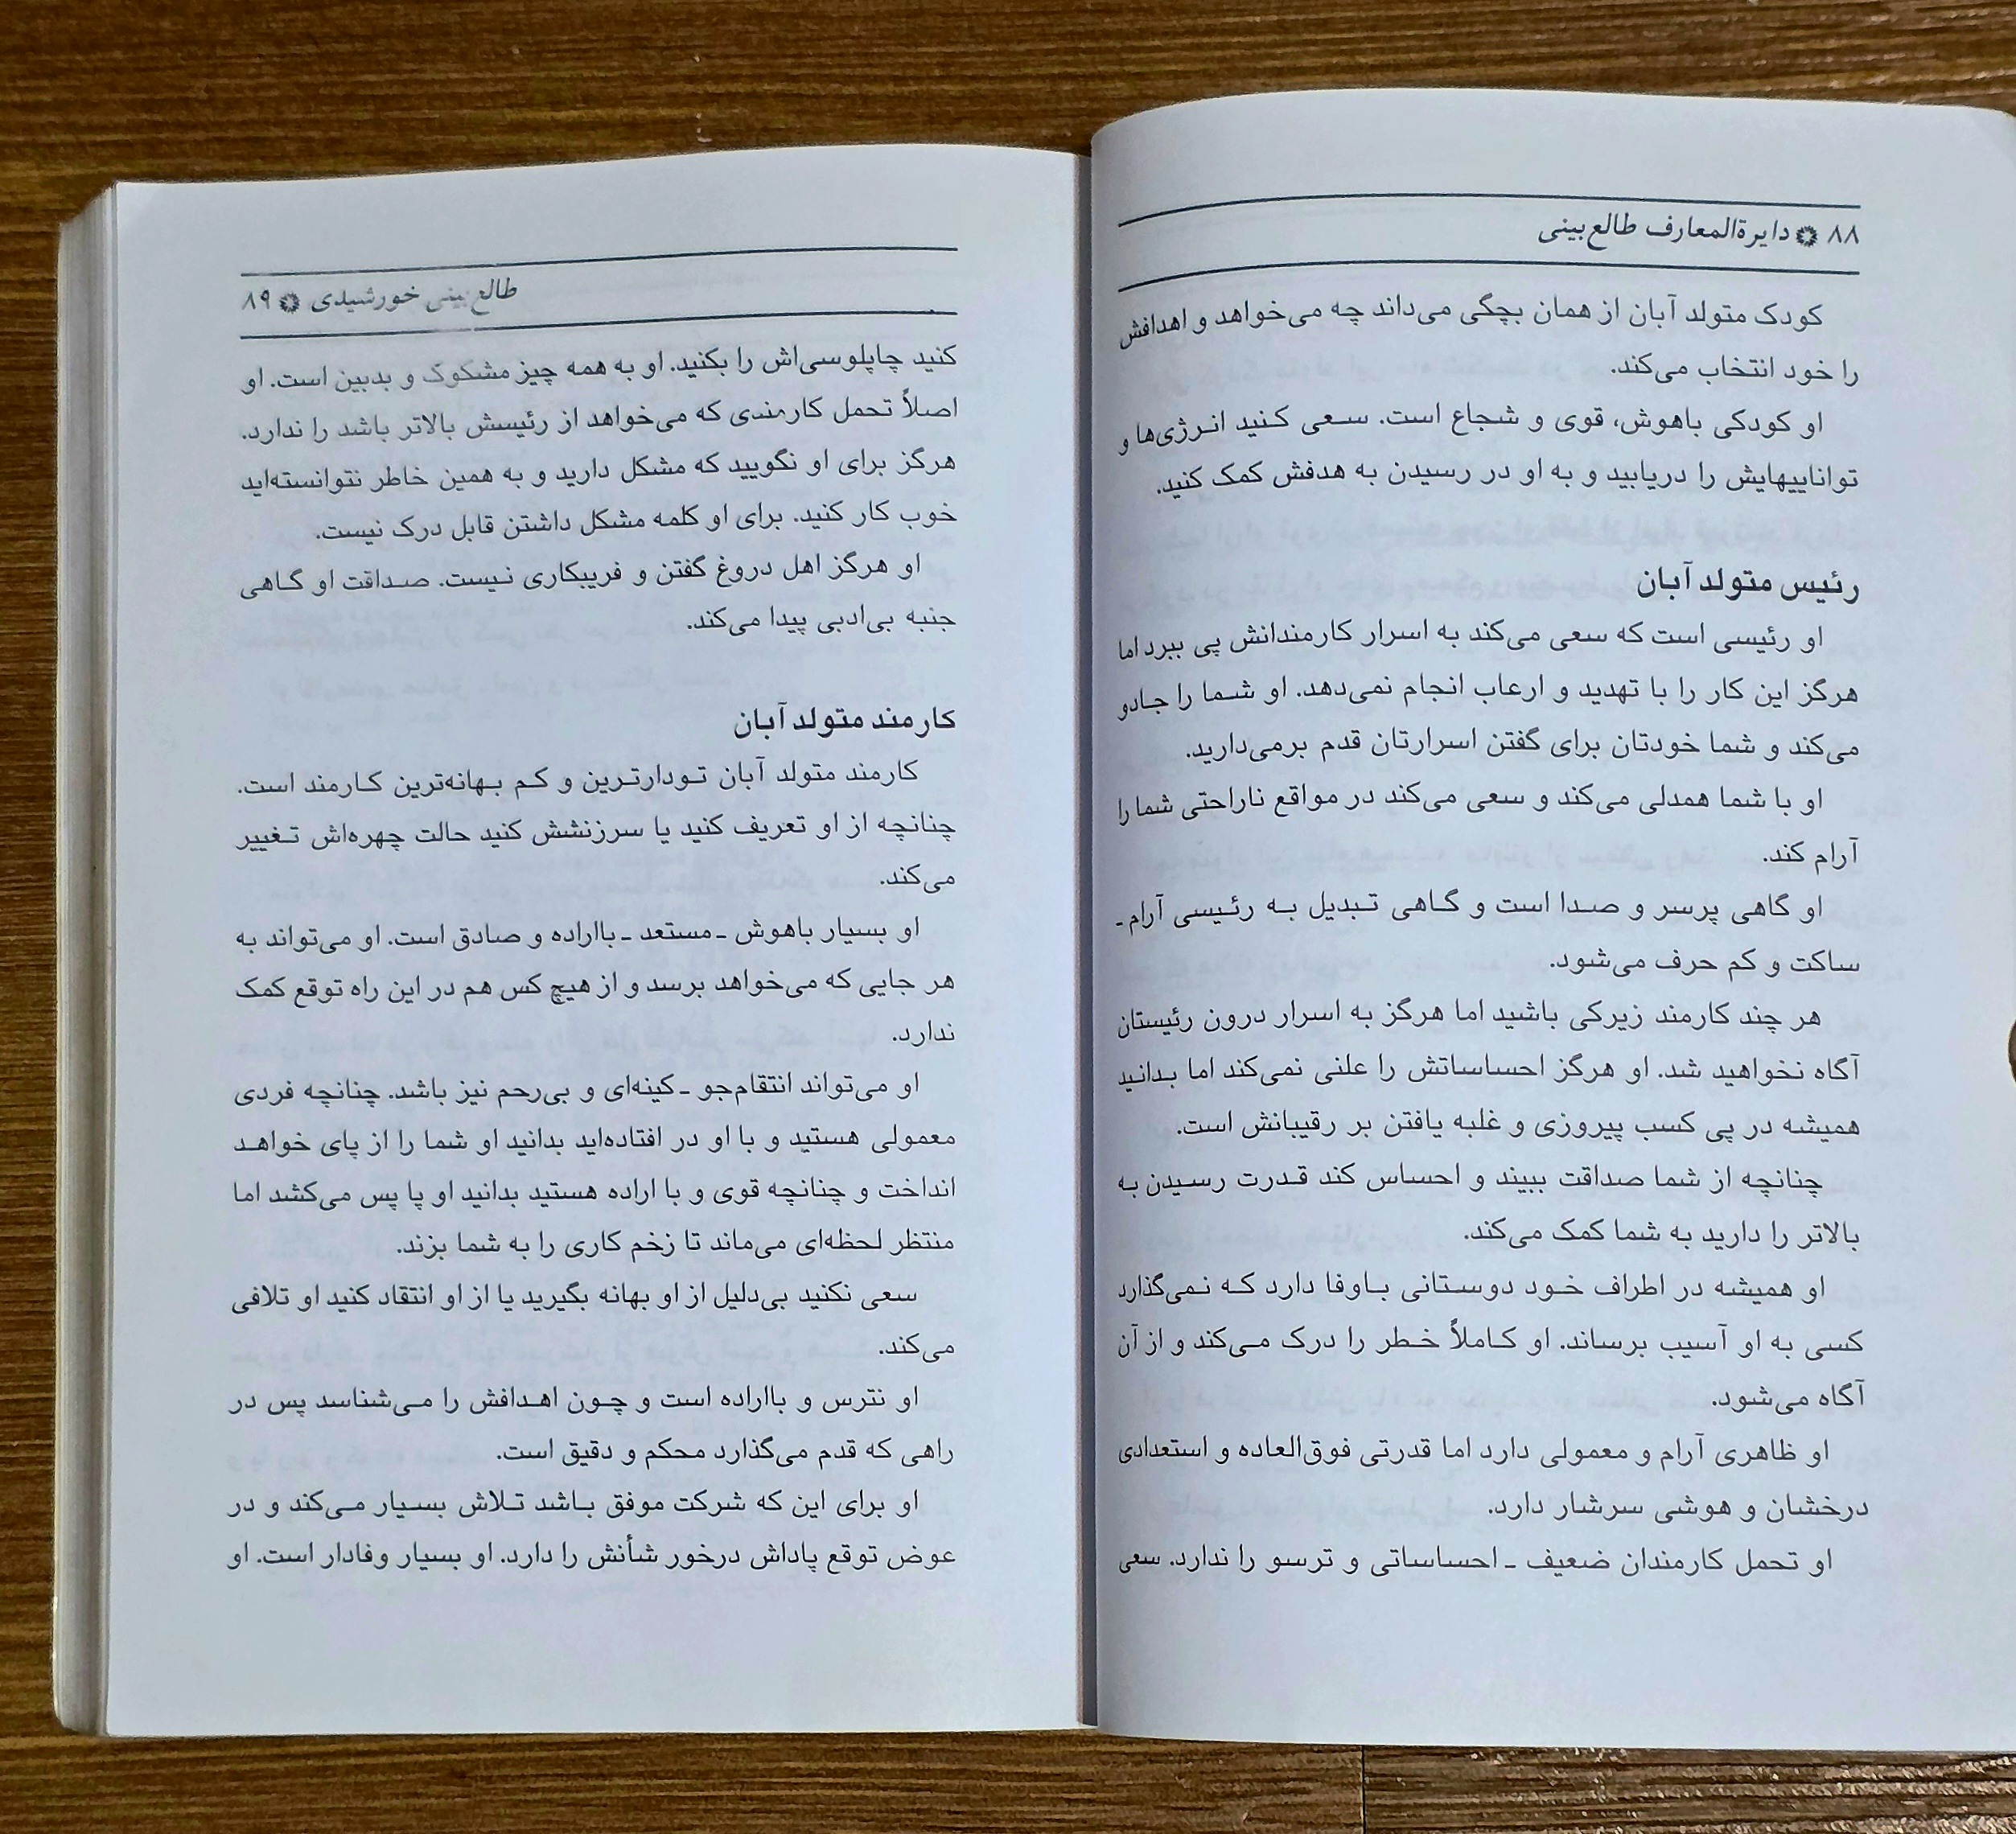 ۸۸ ❋ دایرةالمعارف طالع‌بینی
کودک متولد آبان از همان بچگی می‌داند چه می‌خواهد و اهدافش
را خود انتخاب می‌کند.
او کودکی باهوش، قوی و شجاع است. سعی کنید انرژی‌ها و
تواناییهایش را دریابید و به او در رسیدن به هدفش کمک کنید.
رئیس متولد آبان
او رئیسی است که سعی می‌کند به اسرار کارمندانش پی ببرد اما
هرگز این کار را با تهدید و ارعاب انجام نمی‌دهد. او شما را جادو
می‌کند و شما خودتان برای گفتن اسرارتان قدم برمی‌دارید.
او با شما همدلی می‌کند و سعی می‌کند در مواقع ناراحتی شما را
آرام کند.
او گاهی پرسر و صدا است و گاهی تبدیل به رئیسی آرام ـ
ساکت و کم حرف می‌شود.
هر چند کارمند زیرکی باشید اما هرگز به اسرار درون رئیستان
آگاه نخواهید شد. او هرگز احساساتش را علنی نمی‌کند اما بدانید
همیشه در پی کسب پیروزی و غلبه یافتن بر رقیبانش است.
چنانچه از شما صداقت ببیند و احساس کند قدرت رسیدن به
بالاتر را دارید به شما کمک می‌کند.
او همیشه در اطراف خود دوستانی باوفا دارد که نمی‌گذارد
کسی به او آسیب برساند. او کاملاً خطر را درک می‌کند و از آن
آگاه می‌شود.
او ظاهری آرام و معمولی دارد اما قدرتی فوق‌العاده و استعدادی
درخشان و هوشی سرشار دارد.
او تحمل کارمندان ضعیف ـ احساساتی و ترسو را ندارد. سعی
طالع‌بینی خورشیدی ❋ ۸۹
کنید چاپلوسی‌اش را بکنید. او به همه چیز مشکوک و بدبین است. او
اصلاً تحمل کارمندی که می‌خواهد از رئیسش بالاتر باشد را ندارد.
هرگز برای او نگویید که مشکل دارید و به همین خاطر نتوانسته‌اید
خوب کار کنید. برای او کلمه مشکل داشتن قابل درک نیست.
او هرگز اهل دروغ گفتن و فریبکاری نیست. صداقت او گاهی
جنبه بی‌ادبی پیدا می‌کند.
کارمند متولد آبان
کارمند متولد آبان تودارترین و کم بهانه‌ترین کارمند است.
چنانچه از او تعریف کنید یا سرزنشش کنید حالت چهره‌اش تغییر
می‌کند.
او بسیار باهوش ـ مستعد ـ بااراده و صادق است. او می‌تواند به
هر جایی که می‌خواهد برسد و از هیچ کس هم در این راه توقع کمک
ندارد.
او می‌تواند انتقام‌جو ـ کینه‌ای و بی‌رحم نیز باشد. چنانچه فردی
معمولی هستید و با او در افتاده‌اید بدانید او شما را از پای خواهد
انداخت و چنانچه قوی و با اراده هستید بدانید او پا پس می‌کشد اما
منتظر لحظه‌ای می‌ماند تا زخم کاری را به شما بزند.
سعی نکنید بی‌دلیل از او بهانه بگیرید یا از او انتقاد کنید او تلافی
می‌کند.
او نترس و بااراده است و چون اهدافش را می‌شناسد پس در
راهی که قدم می‌گذارد محکم و دقیق است.
او برای این که شرکت موفق باشد تلاش بسیار می‌کند و در
عوض توقع پاداش درخور شأنش را دارد. او بسیار وفادار است. او